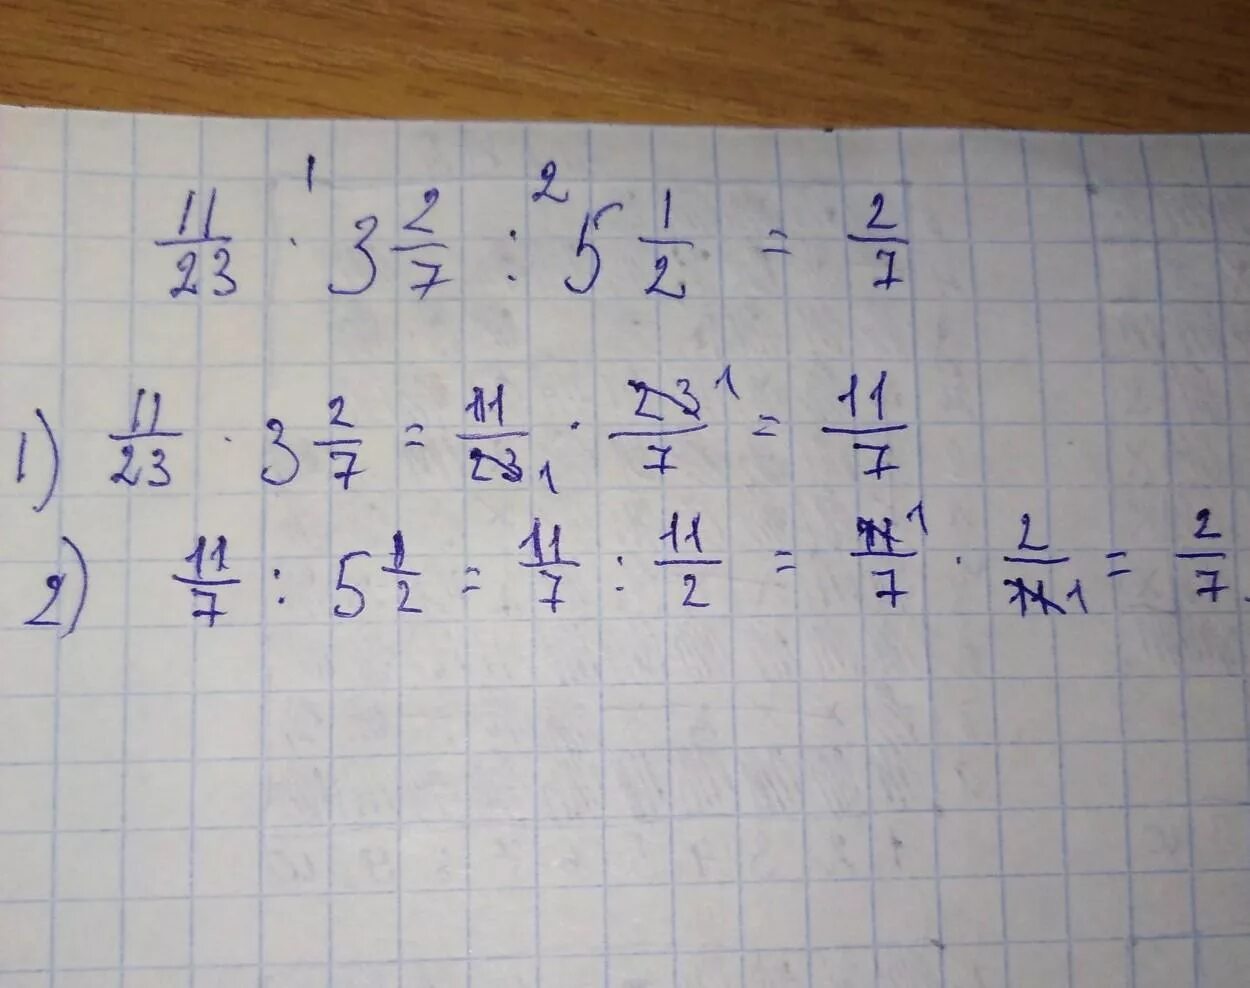 11/23 · 3 2/7 : 5 1/2 = 2/7
1) 11/23 · 3 2/7 = 11/23 · 23/7 = 11/7
2) 11/7 : 5 1/2 = 11/7 : 11/2 = 11/7 · 2/11 = 2/7.